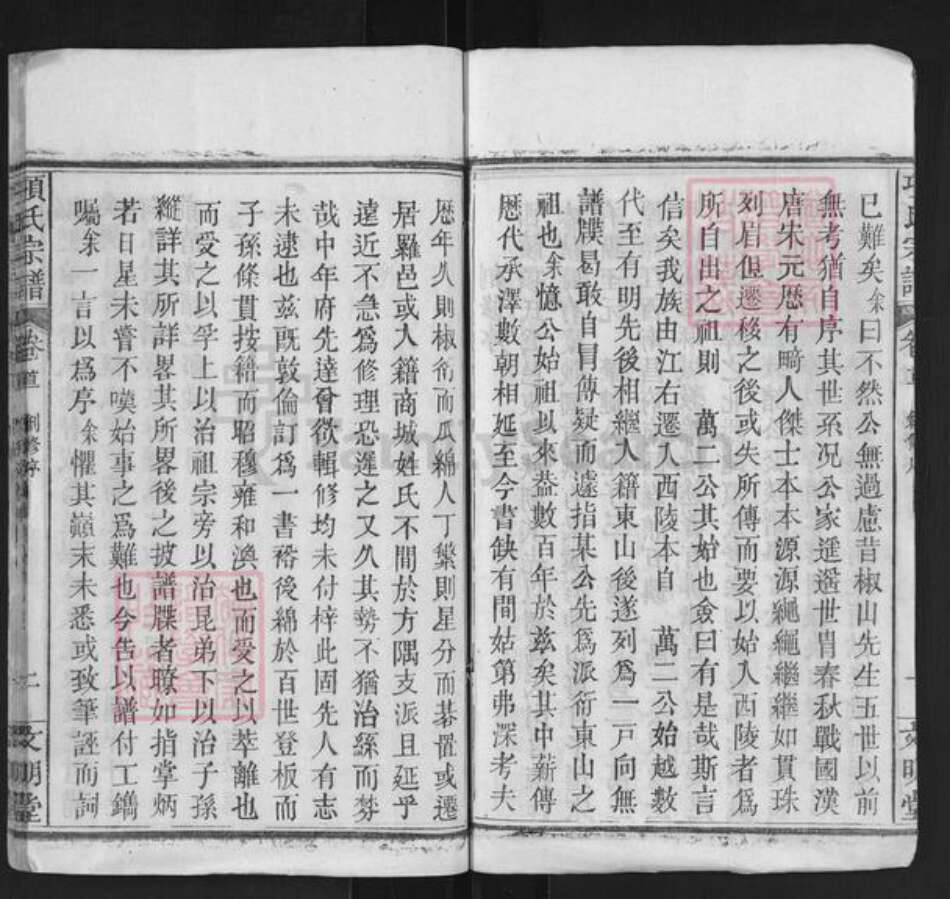 已難矣余曰不然公無過慮昔椒山先生五世以前
無考猶自序其世系况公家遥遥世胄春秋戰國漢
唐宋元歷有畸人傑士本本源源繩繩繼繼如貫珠
列眉但遷移之後或失所傳而要以始入西陵者爲
所自出之祖則 萬二公其始也僉曰有是哉斯言
信矣我族由江右遷入西陵本自 萬二公始越數
代至有明先後相繼入籍東山後遂列爲一戸向無
譜牒曷敢自冐傳疑而遽指某公先爲派衍東山之
祖也余憶公始祖以來葢數百年於兹矣其中薪傳
厯代承澤數朝相延至今書缺有間姑第弗深考夫
厯年久則椒衍而瓜綿人丁繁則星分而碁置或遷
居羅邑或入籍商城姓氏不間於方隅支派且延乎
遠近不急爲修理恐遲之又久其勢不猶治絲而棼
哉中年府先達曾欲輯修均未付梓此固先人有志
未逮也兹既敦倫訂爲一書裕後綿於百世登板而
子孫條貫按籍而昭穆雍和渙也而受之以萃離也
而受之以孚上以治祖宗旁以治昆弟下以治子孫
縱詳其所詳畧其所畧後之披譜牒者瞭如指掌炳
若日星未嘗不嘆始事之爲難也今告以譜付工鐫
囑余一言以爲序余懼其巔末未悉或致筆誣而詞
項氏宗譜 卷首 創修序 二 文明堂